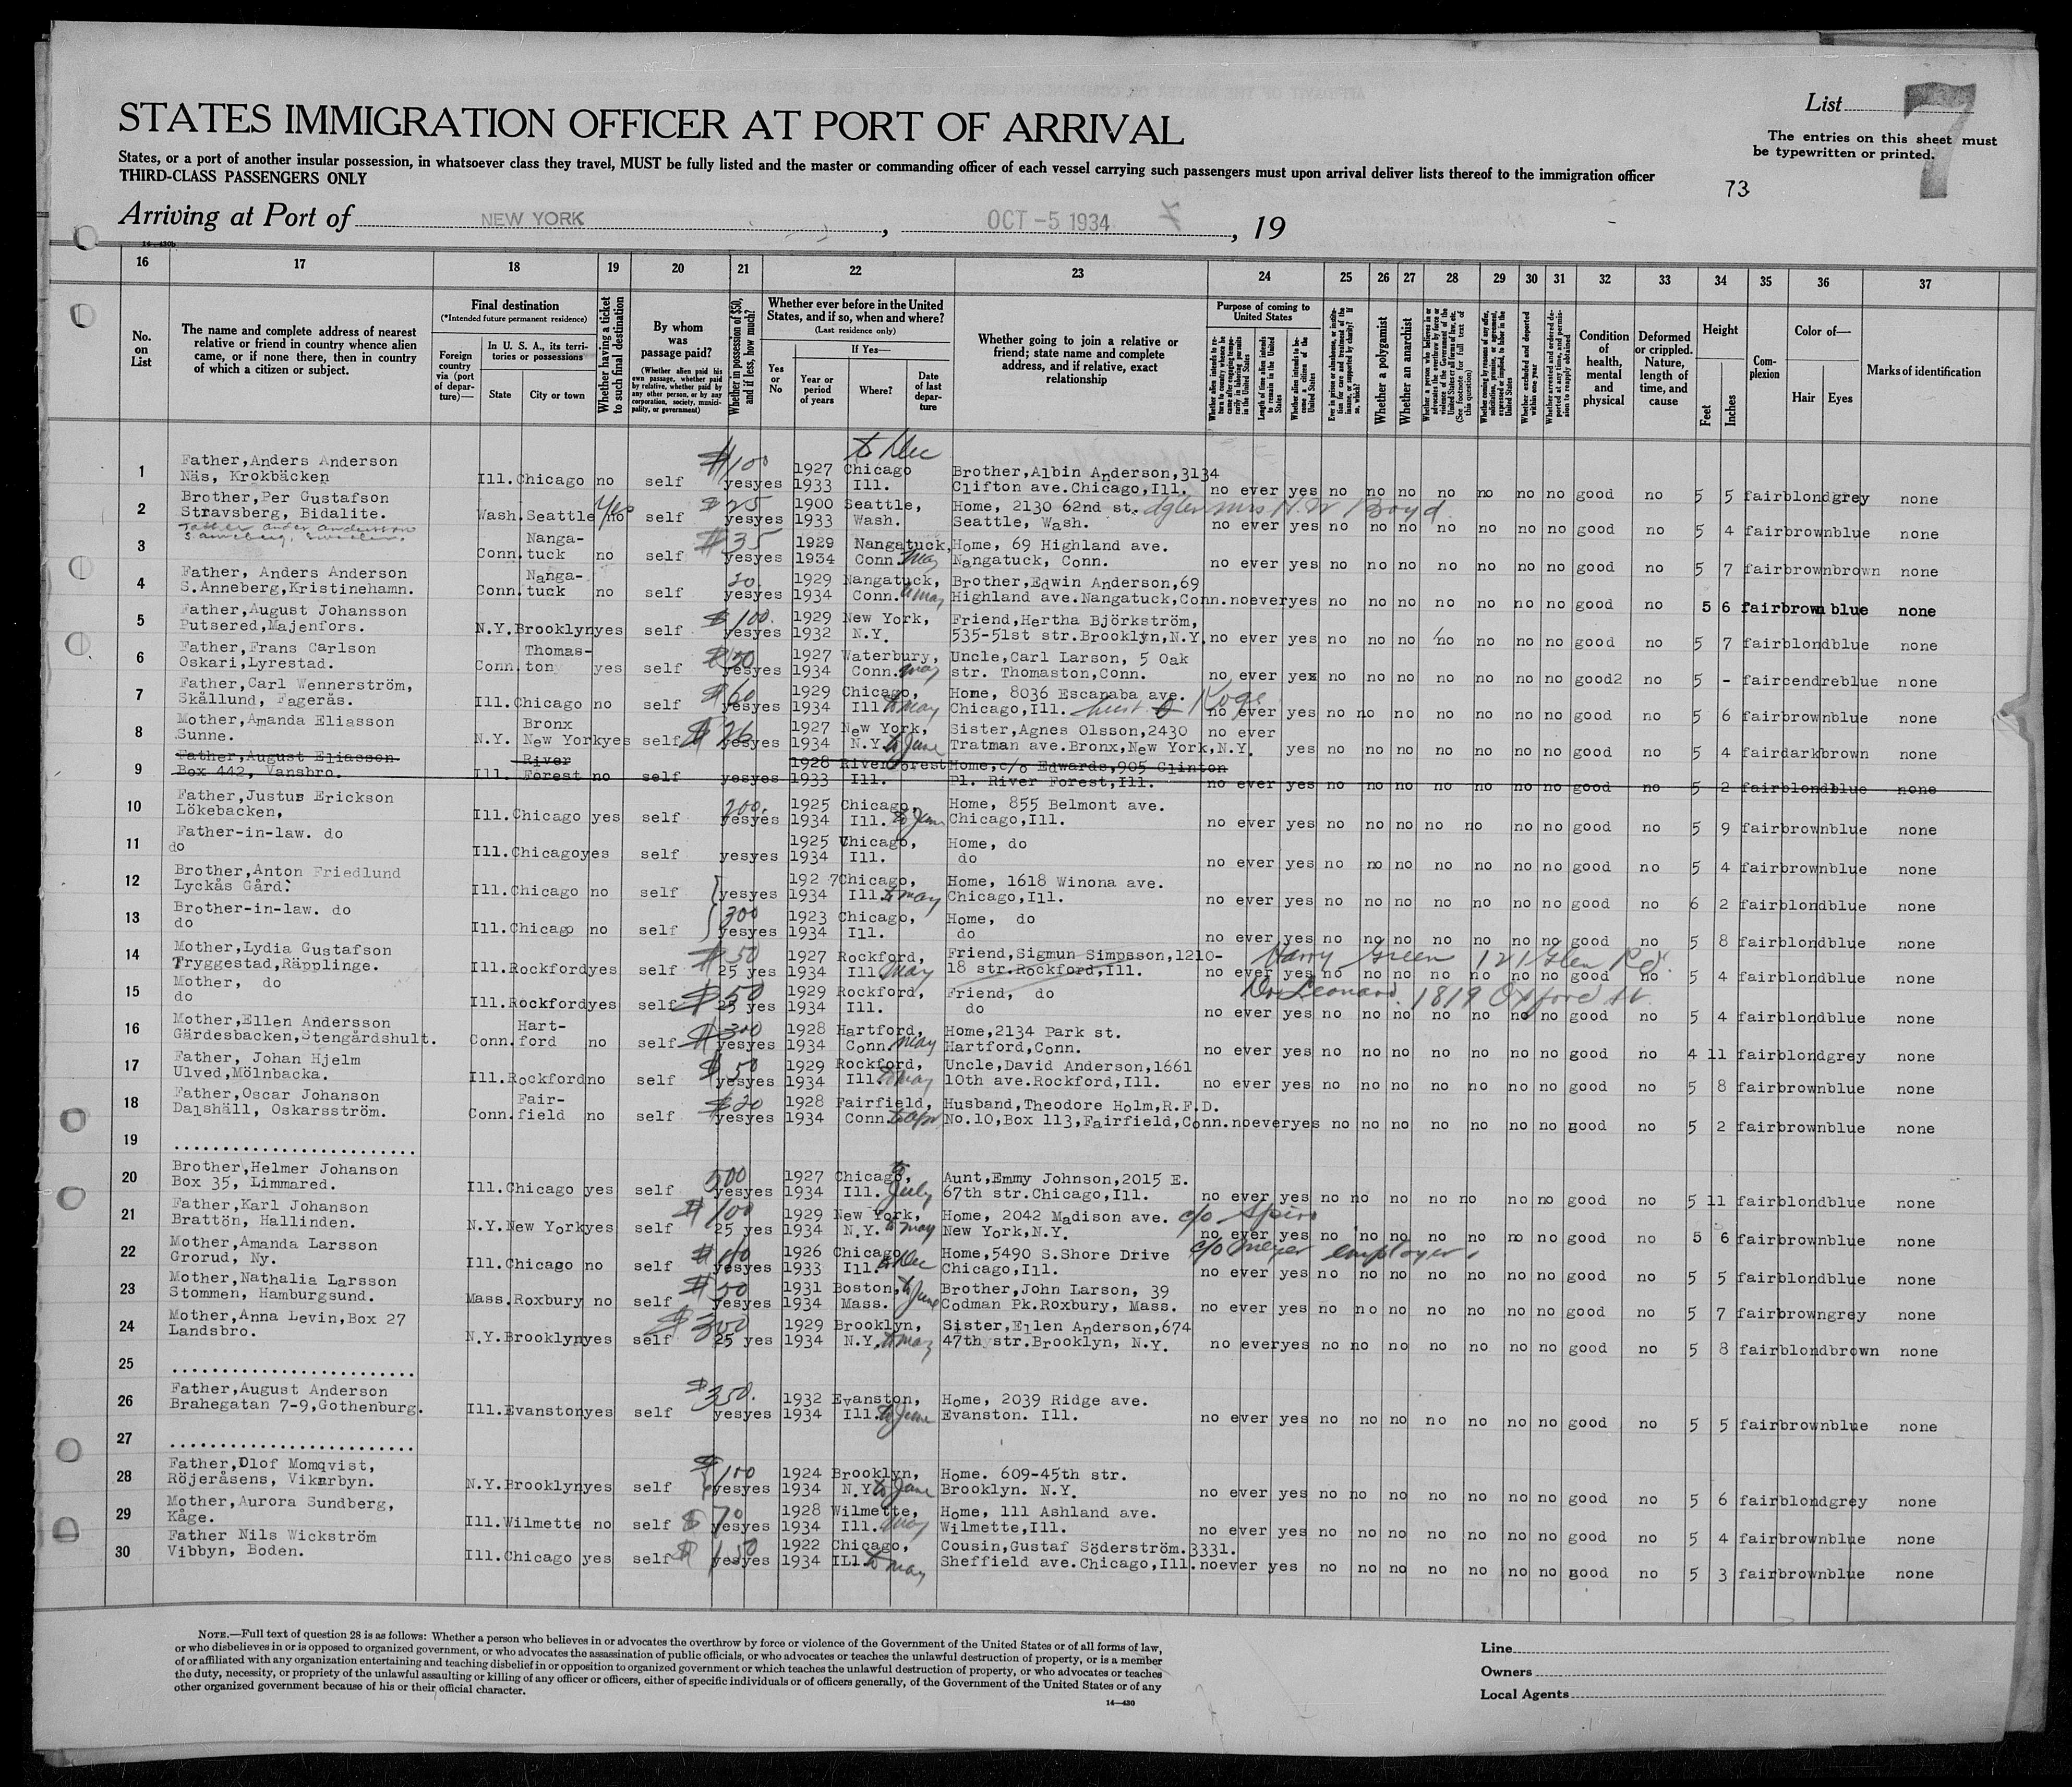 List 7
STATES IMMIGRATION OFFICER AT PORT OF ARRIVAL
The entries on this sheet must
be typewritten or printed.
States, or a port of another insular possession, in whatsoever class they travel, MUST be fully listed and the master or commanding officer of each vessel carrying such passengers must upon arrival deliver lists thereof to the immigration officer
THIRD-CLASS PASSENGERS ONLY
73
Arriving at Port of NEW YORK, OCT -5 1934 7, 19
14—430b
16 17 18 19 20 21 22 23 24 25 26 27 28 29 30 31 32 33 34 35 36 37
No. on List
The name and complete address of nearest relative or friend in country whence alien came, or if none there, then in country of which a citizen or subject.
Final destination
(*Intended future permanent residence)
Foreign country via (port of departure)—
In U. S. A., its territories or possessions
State
City or town
Whether having a ticket to such final destination
By whom was passage paid?
(Whether alien paid his own passage, whether paid by relative, whether paid by any other person, or by any corporation, society, municipality, or government)
Whether in possession of $50, and if less, how much?
Whether ever before in the United States, and if so, when and where?
(Last residence only)
Yes or No
If Yes—
Year or period of years
Where?
Date of last departure
Whether going to join a relative or friend; state name and complete address, and if relative, exact relationship
Purpose of coming to United States
Length of time alien intends to remain in the United States
Whether alien intends to become a citizen of the United States
Whether a polygamist
Whether an anarchist
Condition of health, mental and physical
Deformed or crippled. Nature, length of time, and cause
Height
Feet
Inches
Complexion
Color of—
Hair
Eyes
Marks of identification
to Dec
1 Father,Anders Anderson $100 1927 Chicago Brother,Albin Anderson,3134
Näs, Krokbäcken Ill. Chicago no self yes yes 1933 Ill. Clifton ave.Chicago,Ill. no ever yes no no no no no no no good no 5 5 fair blond grey none
2 Brother,Per Gustafson Yes $25 1900 Seattle, Home, 2130 62nd st. Mrs H. W Boyd
Stravsberg, Bidalite. Wash. Seattle no self yes yes 1933 Wash. Seattle, Wash. no ever yes no no no no no no no good no 5 4 fair brown blue none
3 Nanga- $35 1929 Nangatuck, Home, 69 Highland ave.
Conn. tuck no self yes yes 1934 Conn. May Nangatuck, Conn. no ever yes no no no no no no no good no 5 7 fair brown brown none
4 Father, Anders Anderson Nanga- 20. 1929 Nangatuck, Brother,Edwin Anderson,69
S.Anneberg,Kristinehamn. Conn. tuck no self yes yes 1934 Conn. to May Highland ave.Nangatuck,Conn. no ever yes no no no no no no no good no 5 6 fair brown blue none
5 Father,August Johansson $100. 1929 New York, Friend,Hertha Björkström,
Putsered,Majenfors. N.Y. Brooklyn yes self yes yes 1932 N.Y. 535-51st str.Brooklyn,N.Y. no ever yes no no no no no no no good no 5 7 fair blond blue none
6 Father,Frans Carlson Thomas- $50 1927 Waterbury, Uncle,Carl Larson, 5 Oak
Oskari,Lyrestad. Conn. ton yes self yes yes 1934 Conn. May str. Thomaston,Conn. no ever yes no no no no no no no good2 no 5 - fair cendre blue none
7 Father,Carl Wennerström, $60 1929 Chicago, Home, 8036 Escanaba ave.
Skållund, Fagerås. Ill. Chicago no self yes yes 1934 Ill. to May Chicago,Ill. no ever yes no no no no no no no good no 5 6 fair brown blue none
8 Mother,Amanda Eliasson Bronx $26 1927 New York, Sister,Agnes Olsson,2430 no ever
Sunne. N.Y. New York yes self yes yes 1934 N.Y. to June Tratman ave.Bronx,New York,N.Y. yes no no no no no no no good no 5 4 fair dark brown none
9 Father,August Eliasson River 1928 River Forest Home,c/o Edwards,905 Clinton
Box 442, Vansbro. Ill. Forest no self yes yes 1933 Ill. Pl. River Forest,Ill. no ever yes no no no no no no no good no 5 2 fair blond blue none
10 Father,Justus Erickson 200. 1925 Chicago, Home, 855 Belmont ave.
Lökebacken, Ill. Chicago yes self yes yes 1934 Ill. to June Chicago,Ill. no ever yes no no no no no no no good no 5 9 fair brown blue none
11 Father-in-law. do 1925 Chicago, Home, do
do Ill. Chicago yes self yes yes 1934 Ill. do no ever yes no no no no no no no good no 5 4 fair brown blue none
12 Brother,Anton Friedlund 192 7 Chicago, Home, 1618 Winona ave.
Lyckås Gård. Ill. Chicago no self yes yes 1934 Ill. to May Chicago,Ill. no ever yes no no no no no no no good no 6 2 fair blond blue none
13 Brother-in-law. do 300 1923 Chicago, Home, do
do Ill. Chicago no self yes yes 1934 Ill. do no ever yes no no no no no no no good no 5 8 fair blond blue none
14 Mother,Lydia Gustafson $50 1927 Rockford, Friend,Sigmun Simpsson,1210- Harry Green 121 Glen Rd.
Tryggestad,Räpplinge. Ill. Rockford yes self 25 yes 1934 Ill. May 18 str.Rockford,Ill. no ever yes no no no no no no no good no 5 4 fair blond blue none
15 Mother, do $50 1929 Rockford, Friend, do Dr Leonard. 1819 Oxford st.
do Ill. Rockford yes self 25 yes 1934 Ill. do no ever yes no no no no no no no good no 5 4 fair blond blue none
16 Mother,Ellen Andersson Hart- $300 1928 Hartford, Home,2134 Park st.
Gärdesbacken,Stengårdshult. Conn. ford no self yes yes 1934 Conn. May Hartford,Conn. no ever yes no no no no no no no good no 4 11 fair blond grey none
17 Father, Johan Hjelm $50 1929 Rockford, Uncle,David Anderson,1661
Ulved,Mölnbacka. Ill. Rockford no self yes yes 1934 Ill. to May 10th ave.Rockford,Ill. no ever yes no no no no no no no good no 5 8 fair brown blue none
18 Father,Oscar Johanson Fair- $20 1928 Fairfield, Husband,Theodore Holm,R.F.D.
Dalshäll, Oskarsström. Conn. field no self yes yes 1934 Conn. to Apr No.10,Box 113,Fairfield,Conn. no ever yes no no no no no no no good no 5 2 fair brown blue none
19 ..........................
20 Brother,Helmer Johanson 500 1927 Chicago, to Aunt,Emmy Johnson,2015 E.
Box 35, Limmared. Ill. Chicago yes self yes yes 1934 Ill. July 67th str.Chicago,Ill. no ever yes no no no no no no no good no 5 11 fair blond blue none
21 Father,Karl Johanson $100 1929 New York, Home, 2042 Madison ave. c/o Spiro
Brattön, Hallinden. N.Y. New York yes self 25 yes 1934 N.Y. to May New York,N.Y. no ever yes no no no no no no no good no 5 6 fair brown blue none
22 Mother,Amanda Larsson 1926 Chicago Home,5490 S.Shore Drive c/o Meyer employer.
Grorud, Ny. Ill. Chicago no self yes yes 1933 Ill. to Dec Chicago,Ill. no ever yes no no no no no no no good no 5 5 fair blond blue none
23 Mother,Nathalia Larsson $50 1931 Boston, Brother,John Larson, 39
Stommen, Hamburgsund. Mass. Roxbury no self yes yes 1934 Mass. to June Codman Pk.Roxbury, Mass. no ever yes no no no no no no no good no 5 7 fair brown grey none
24 Mother,Anna Levin,Box 27 $300 1929 Brooklyn, Sister,Ellen Anderson,674
Landsbro. N.Y. Brooklyn yes self 25 yes 1934 N.Y. to May 47th str.Brooklyn, N.Y. no ever yes no no no no no no no good no 5 8 fair blond brown none
25 ..........................
26 Father,August Anderson $350. 1932 Evanston, Home, 2039 Ridge ave.
Brahegatan 7-9,Gothenburg. Ill. Evanston yes self yes yes 1934 Ill. to June Evanston. Ill. no ever yes no no no no no no no good no 5 5 fair brown blue none
27 ..........................
28 Father,Olof Momqvist, $100 1924 Brooklyn, Home. 609-45th str.
Röjeråsens, Vikarbyn. N.Y. Brooklyn yes self yes yes 1934 N.Y. to June Brooklyn. N.Y. no ever yes no no no no no no no good no 5 6 fair blond grey none
29 Mother,Aurora Sundberg, $70 1928 Wilmette, Home, 111 Ashland ave.
Kåge. Ill. Wilmette no self yes yes 1934 Ill. May Wilmette,Ill. no ever yes no no no no no no no good no 5 4 fair brown blue none
30 Father Nils Wickström $150 1922 Chicago, Cousin,Gustaf Söderström.3331.
Vibbyn, Boden. Ill. Chicago yes self yes yes 1934 Ill. to May Sheffield ave.Chicago,Ill. no ever yes no no no no no no no good no 5 3 fair brown blue none
NOTE.—Full text of question 28 is as follows: Whether a person who believes in or advocates the overthrow by force or violence of the Government of the United States or of all forms of law,
or who disbelieves in or is opposed to organized government, or who advocates the assassination of public officials, or who advocates or teaches the unlawful destruction of property, or is a member
of or affiliated with any organization entertaining and teaching disbelief in or opposition to organized government or which teaches the unlawful destruction of property, or who advocates or teaches
the duty, necessity, or propriety of the unlawful assaulting or killing of any officer or officers, either of specific individuals or of officers generally, of the Government of the United States or of any
other organized government because of his or their official character.
14—430
Line
Owners
Local Agents